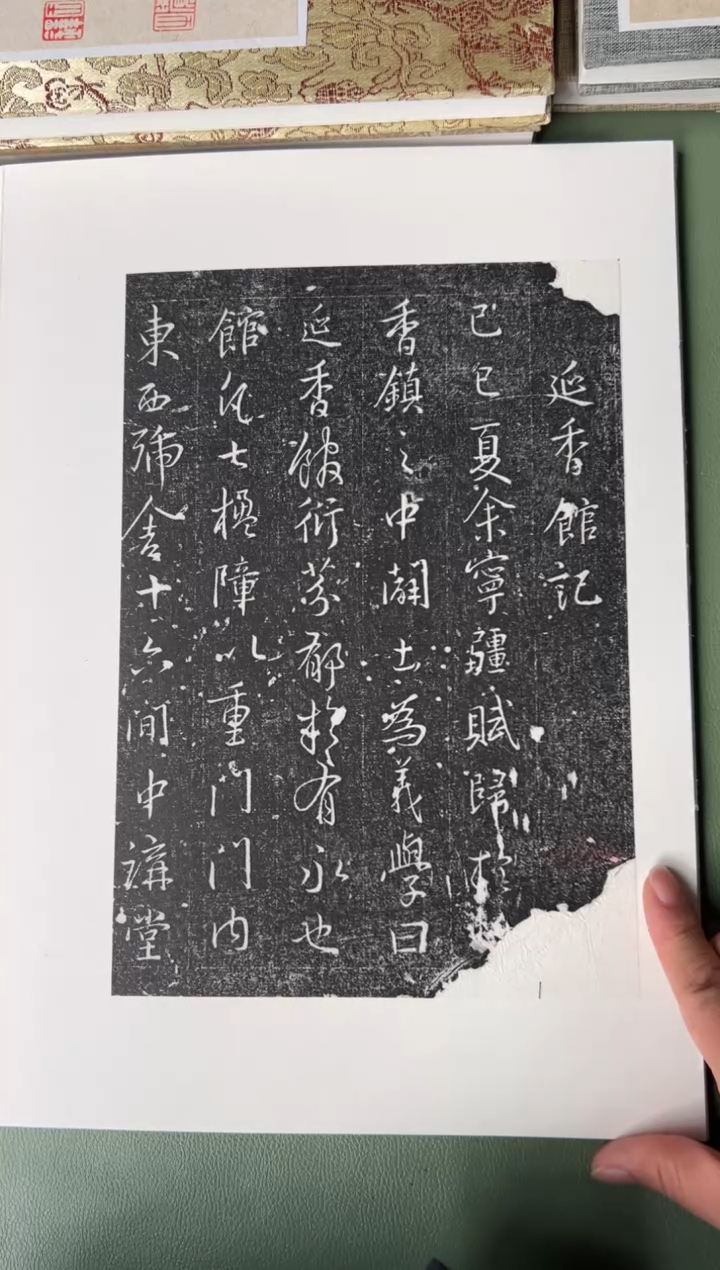 延香館記
己巳夏余寧疆賦歸於
香鎮之中闢土為義學曰
延香馥衍芬郁於有永也
館凡七楹障以重門門内
東西號舍十六間中講堂